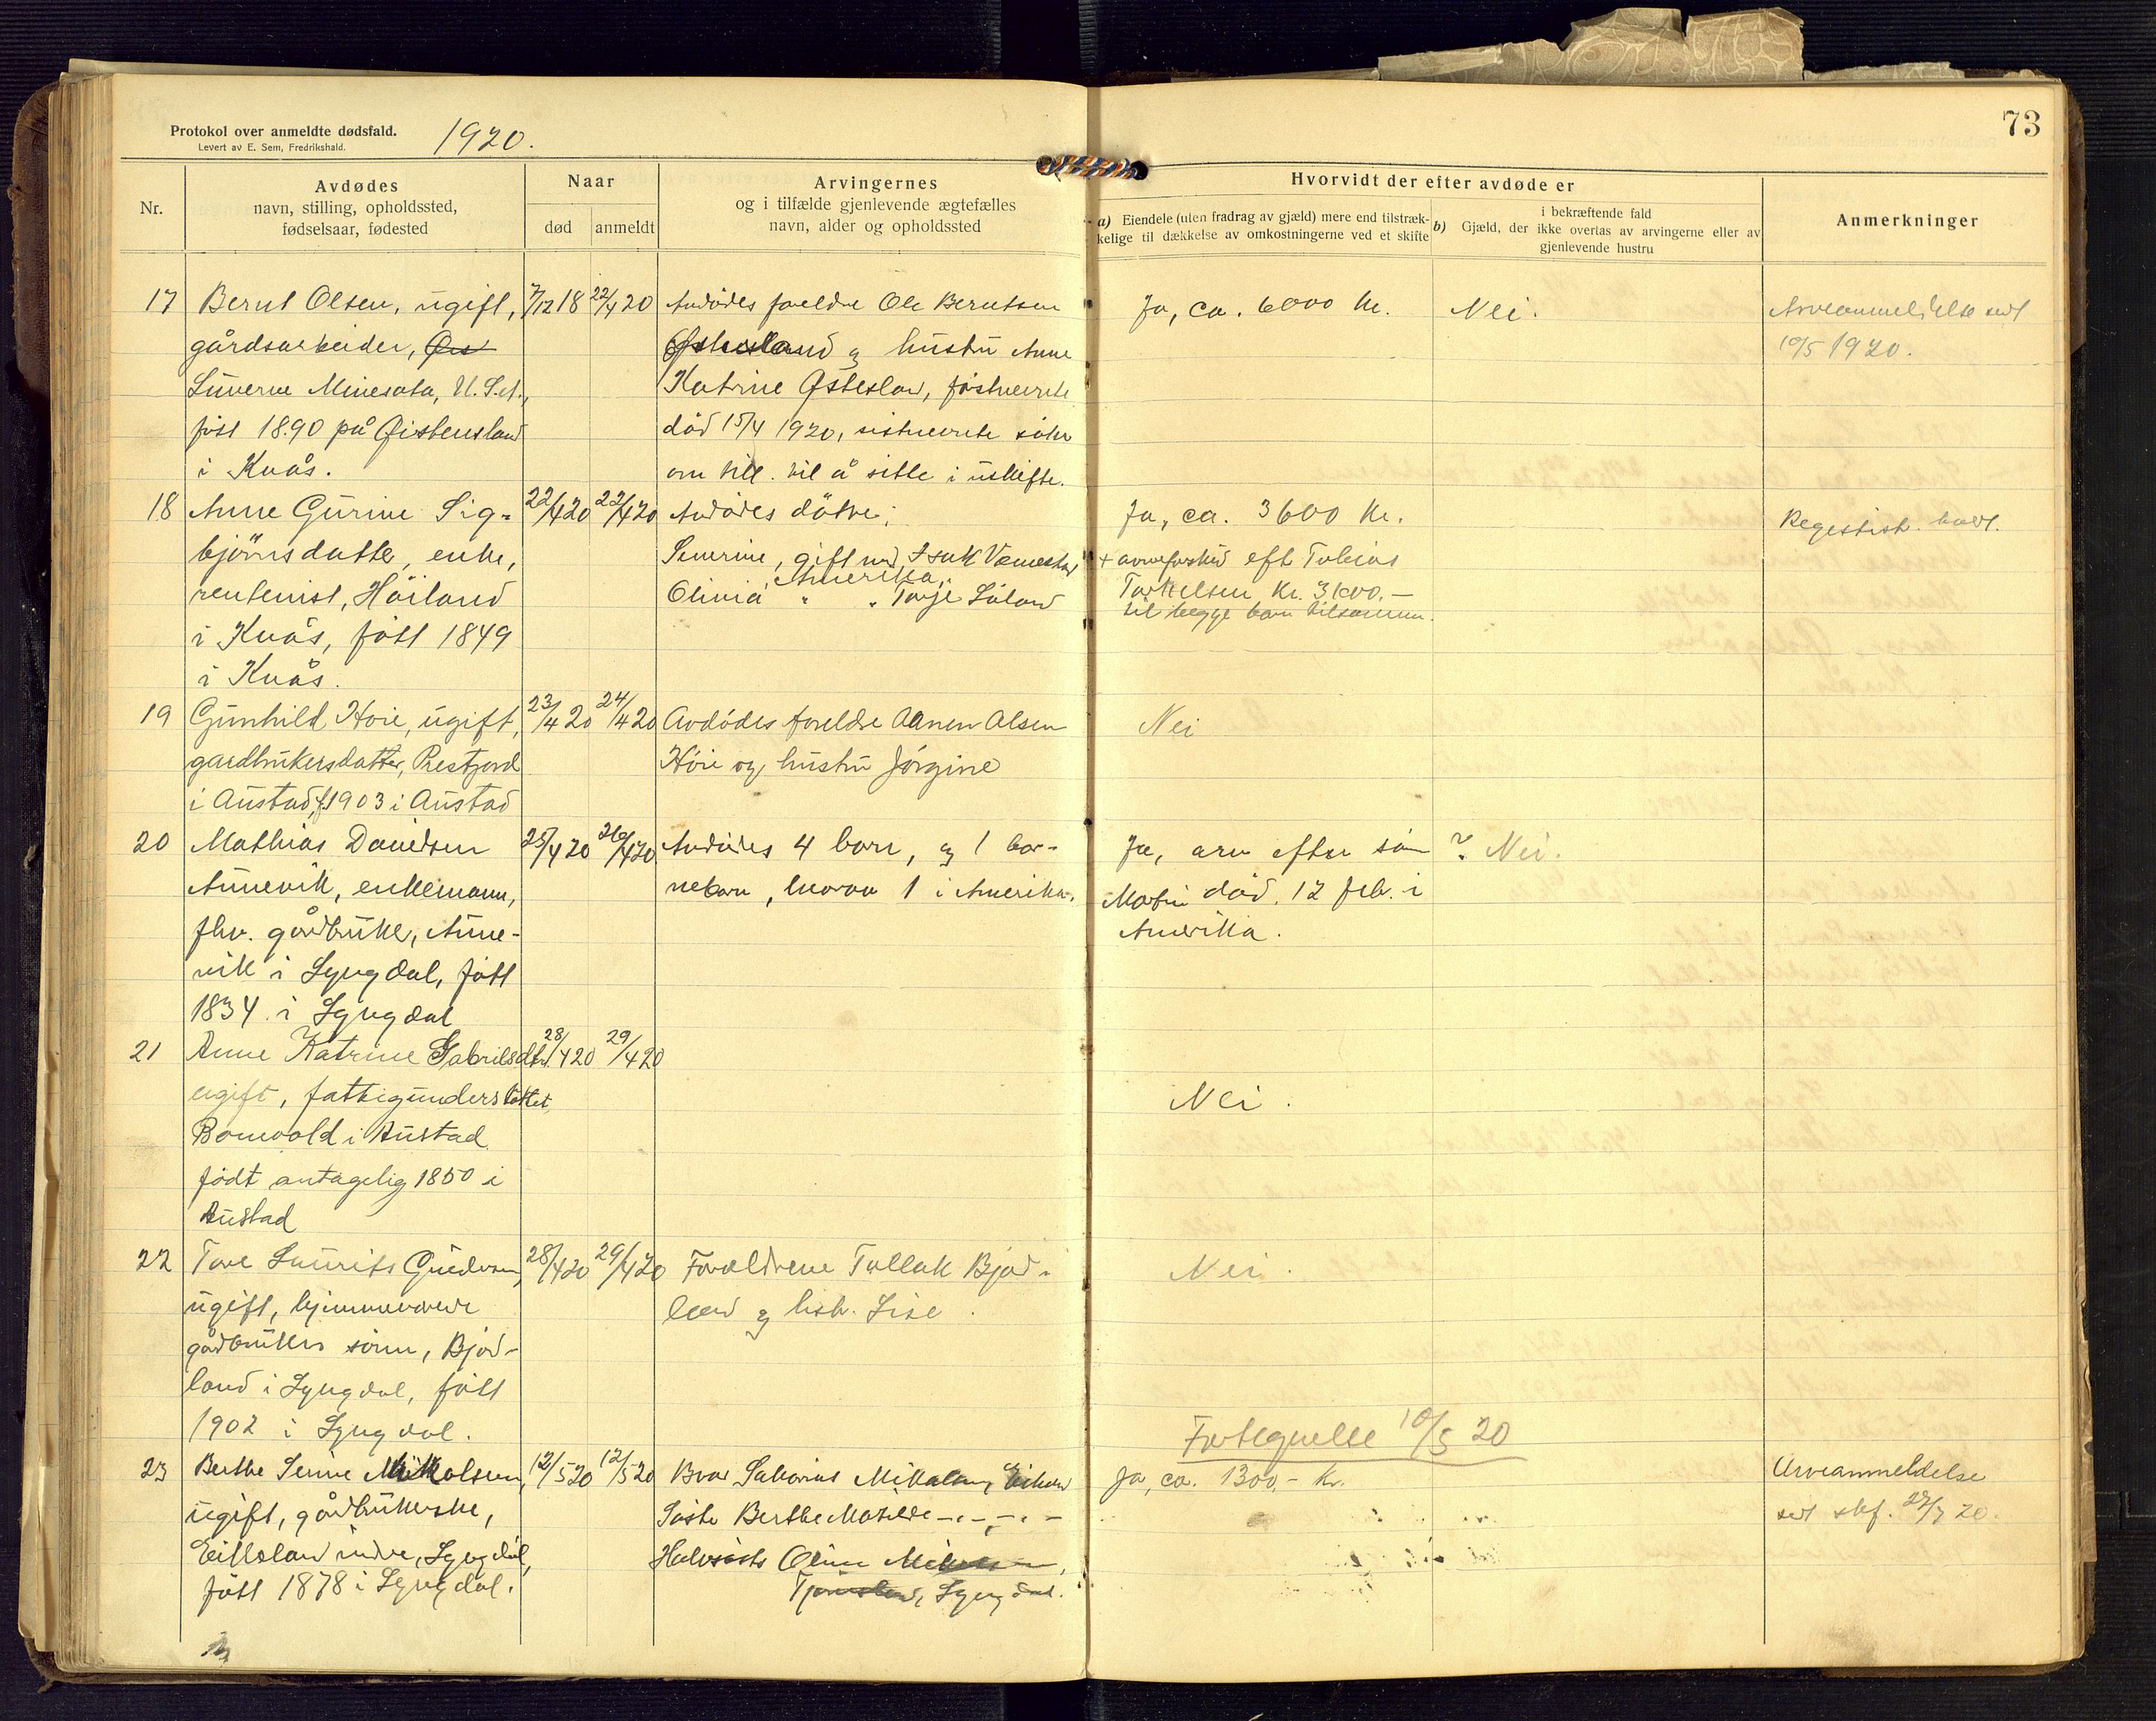 73
Protokol over anmeldte dødsfald.
Levert av E. Sem, Fredrikshald.
1920.
Nr.
Avdødes
navn, stilling, opholdssted,
fødselsaar, fødested
Naar
død
anmeldt
Arvingernes
og i tilfælde gjenlevende ægtefælles
navn, alder og opholdssted
Hvorvidt der efter avdøde er
a) Eiendele (uten fradrag av gjæld) mere end tilstræk-
kelige til dækkelse av omkostningerne ved et skifte
i bekræftende fald
b) Gjæld, der ikke overtas av arvingerne eller av
gjenlevende hustru
Anmerkninger
17
Bernt Olsen, ugift,
gårdsarbeider,
Luverne Minesota, U.S.A.,
fött 1890 på Øistensland
i Kvås.
7/12 18
22/4 20
Avdödes foreldre Ole Berntsen
og hustru Anne
Katrine
död 15/4 1920, sistnevnte söker
om till. til å sitte i uskifte.
Ja, ca. 6000 kr.
Nei.
Arveanmeldelse sedt
10/5 1920.
18
Anne Gurine Sig-
björnsdatter, enke,
rentenist, Höiland
i Kvås, fött 1849
i Kvås.
22/4 20
22/4 20
Avdödes dötre:
Severine, gift med Isak
Amerika,
Olivia " " Tarje
Ja, ca. 3600 kr.
+ arveforskud eft Tobias
Torkelsen kr. 3600.-
til begge barn tilsammen.
Registrert
19
Gunhild Hoie, ugift,
gardbrukersdatter, Prestjord
i Austad, f. 1903 i Austad
23/4 20
24/4 20
Avdódes foreldre Aanen Olsen
Hóie og hustru Jórgine
Nei
20
Mathias Davidsen
Aunevik, enkemann,
fhv. gårdbruker, Aune-
vik i Lyngdal, fött
1834 i Lyngdal
25/4 20
26/4 20
Avdödes 4 barn, og 1 bar-
nebarn, hvorav 1 i Amerika.
Ja, arv efter sön
Martin död 12 feb. i
Amerika.
? Nei.
21
Anne Katrine Gabrilsdtr.
ugift, fattigunderstöttet
i Austad
födt antagelig 1850 i
Austad
28/4 20
29/4 20
Nei.
22
Tore Laurits
ugift, hjemmeværende
gårdbrukers sönn, Bjod-
land i Lyngdal, fött
1902 i Lyngdal.
28/4 20
29/4 20
Foreldrene Tallak Bjod-
land og hstr. Lise.
Nei.
Fortegnelse 10/5 20
23
Berthe Serine Mikkalsen,
ugift, gårdbrukerske,
indre, Lyngdal,
fött 1878 i Lyngdal.
12/5 20
12/5 20
Bror Sakarias Mikalsen,
Söster Berthe Matilde -"-
Halvsöster Oline
Lyngdal.
Ja, ca. 1300,- kr.
Arveanmeldelse